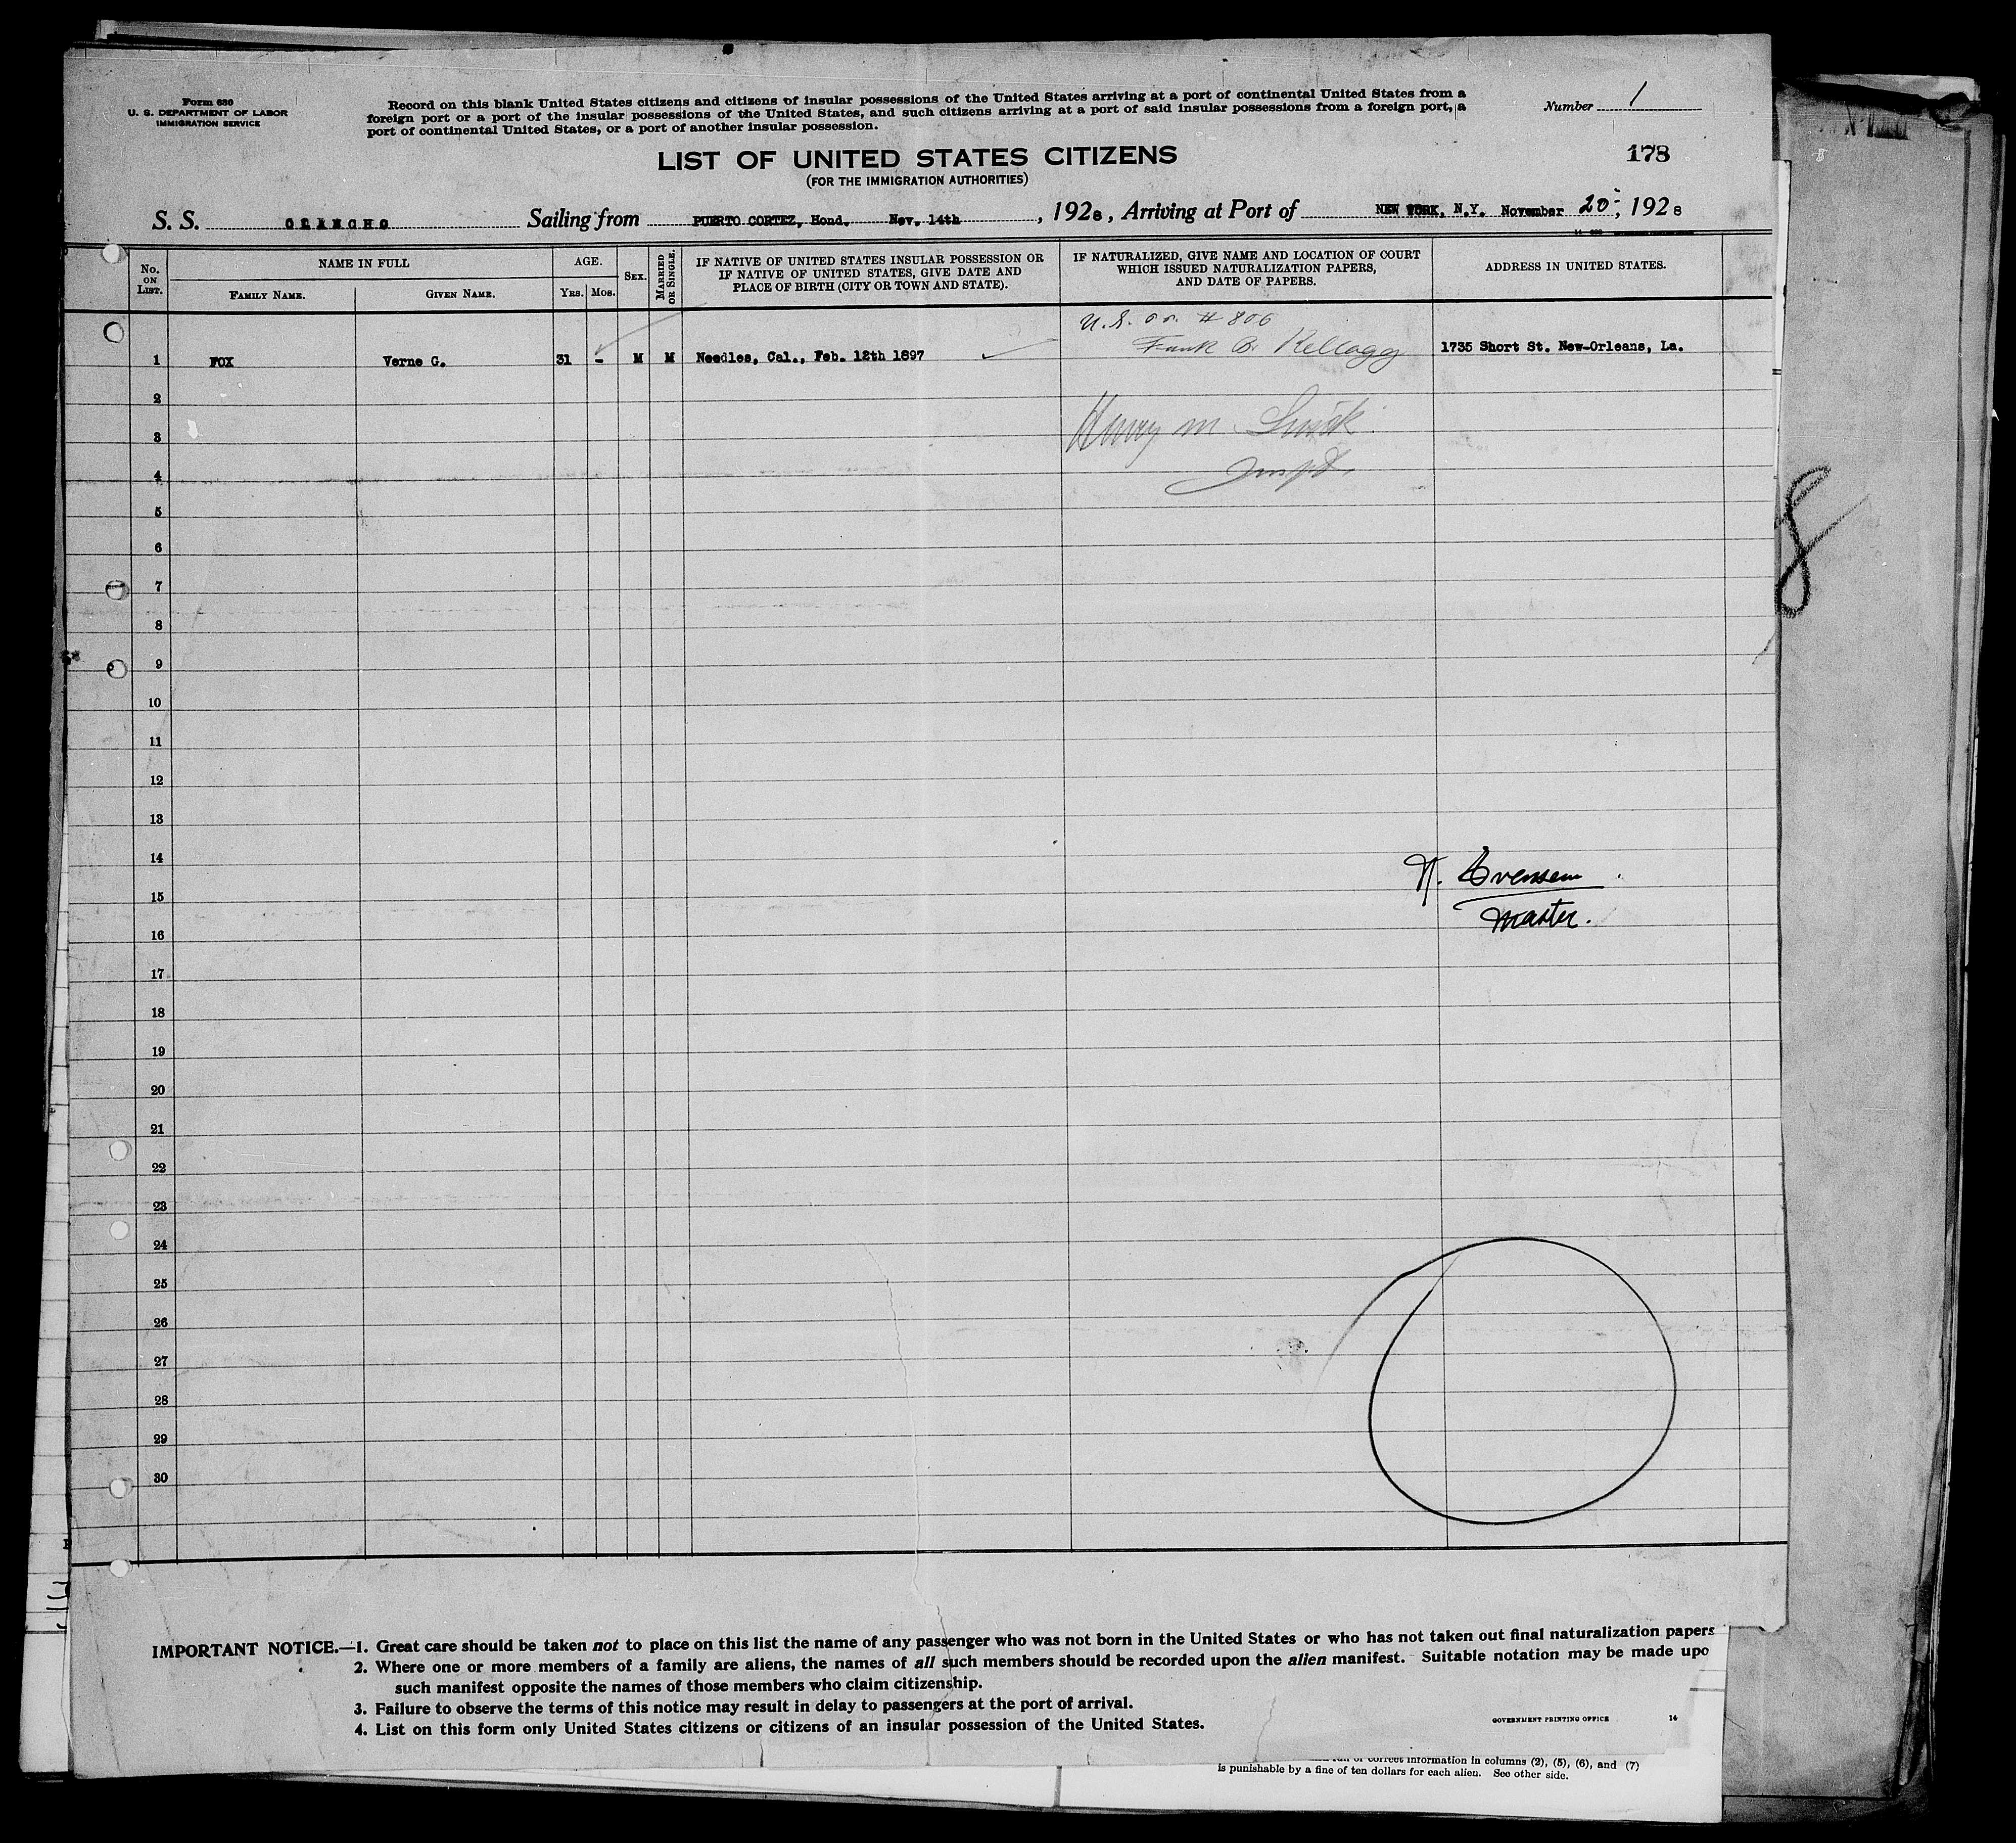 Form 630
U. S. DEPARTMENT OF LABOR
IMMIGRATION SERVICE
Record on this blank United States citizens and citizens of insular possessions of the United States arriving at a port of continental United States from a
foreign port or a port of the insular possessions of the United States, and such citizens arriving at a port of said insular possessions from a foreign port, a
port of continental United States, or a port of another insular possession.
Number 1
178
LIST OF UNITED STATES CITIZENS
(FOR THE IMMIGRATION AUTHORITIES)
S. S. OLANCHO Sailing from PUERTO CORTEZ, Hond. Nov. 14th, 1928, Arriving at Port of NEW YORK, N.Y. November 20, 1928
No. ON LIST.
NAME IN FULL
FAMILY NAME. GIVEN NAME.
AGE.
YRS. MOS.
SEX.
MARRIED OR SINGLE.
IF NATIVE OF UNITED STATES INSULAR POSSESSION OR
IF NATIVE OF UNITED STATES, GIVE DATE AND
PLACE OF BIRTH (CITY OR TOWN AND STATE).
IF NATURALIZED, GIVE NAME AND LOCATION OF COURT
WHICH ISSUED NATURALIZATION PAPERS,
AND DATE OF PAPERS.
ADDRESS IN UNITED STATES.
U.S. # 806
Frank B. Kellogg
1 FOX Verne G. 31 - M M Needles, Cal., Feb. 12th 1897 1735 Short St. New-Orleans, La.
2
3
4
Inspt.
5
6
7
8
9
10
11
12
13
14
N. Evensen
15
Master.
16
17
18
19
20
21
22
23
24
25
26
27
28
29
30
8
IMPORTANT NOTICE.—1. Great care should be taken not to place on this list the name of any passenger who was not born in the United States or who has not taken out final naturalization papers
2. Where one or more members of a family are aliens, the names of all such members should be recorded upon the alien manifest. Suitable notation may be made upo
such manifest opposite the names of those members who claim citizenship.
3. Failure to observe the terms of this notice may result in delay to passengers at the port of arrival.
4. List on this form only United States citizens or citizens of an insular possession of the United States.
GOVERNMENT PRINTING OFFICE 14
or correct information in columns (2), (5), (6), and (7)
is punishable by a fine of ten dollars for each alien. See other side.